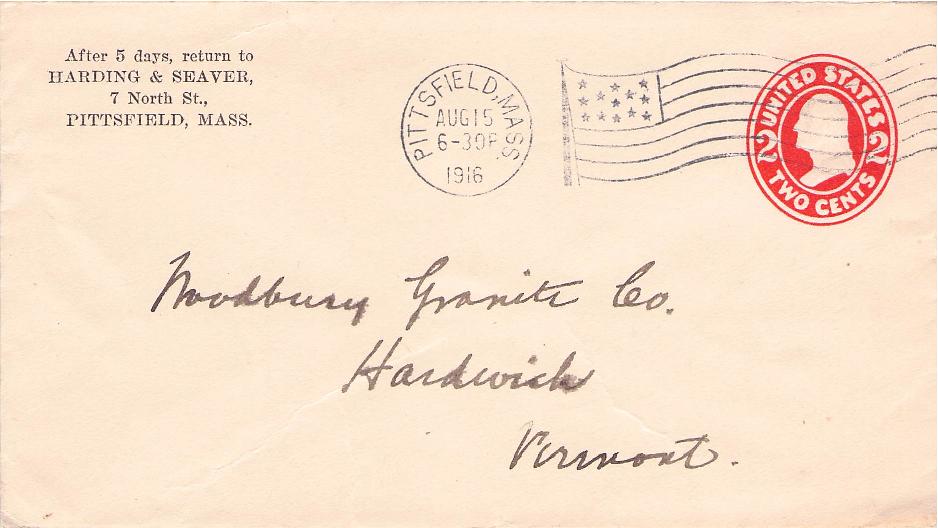 After 5 days, return to
HARDING & SEAVER,
7 North St.,
PITTSFIELD, MASS.
PITTSFIELD, MASS.
AUG 15
6-30P
1916
UNITED STATES
2 2
TWO CENTS
Woodbury Granite Co.
Hardwick
Vermont.